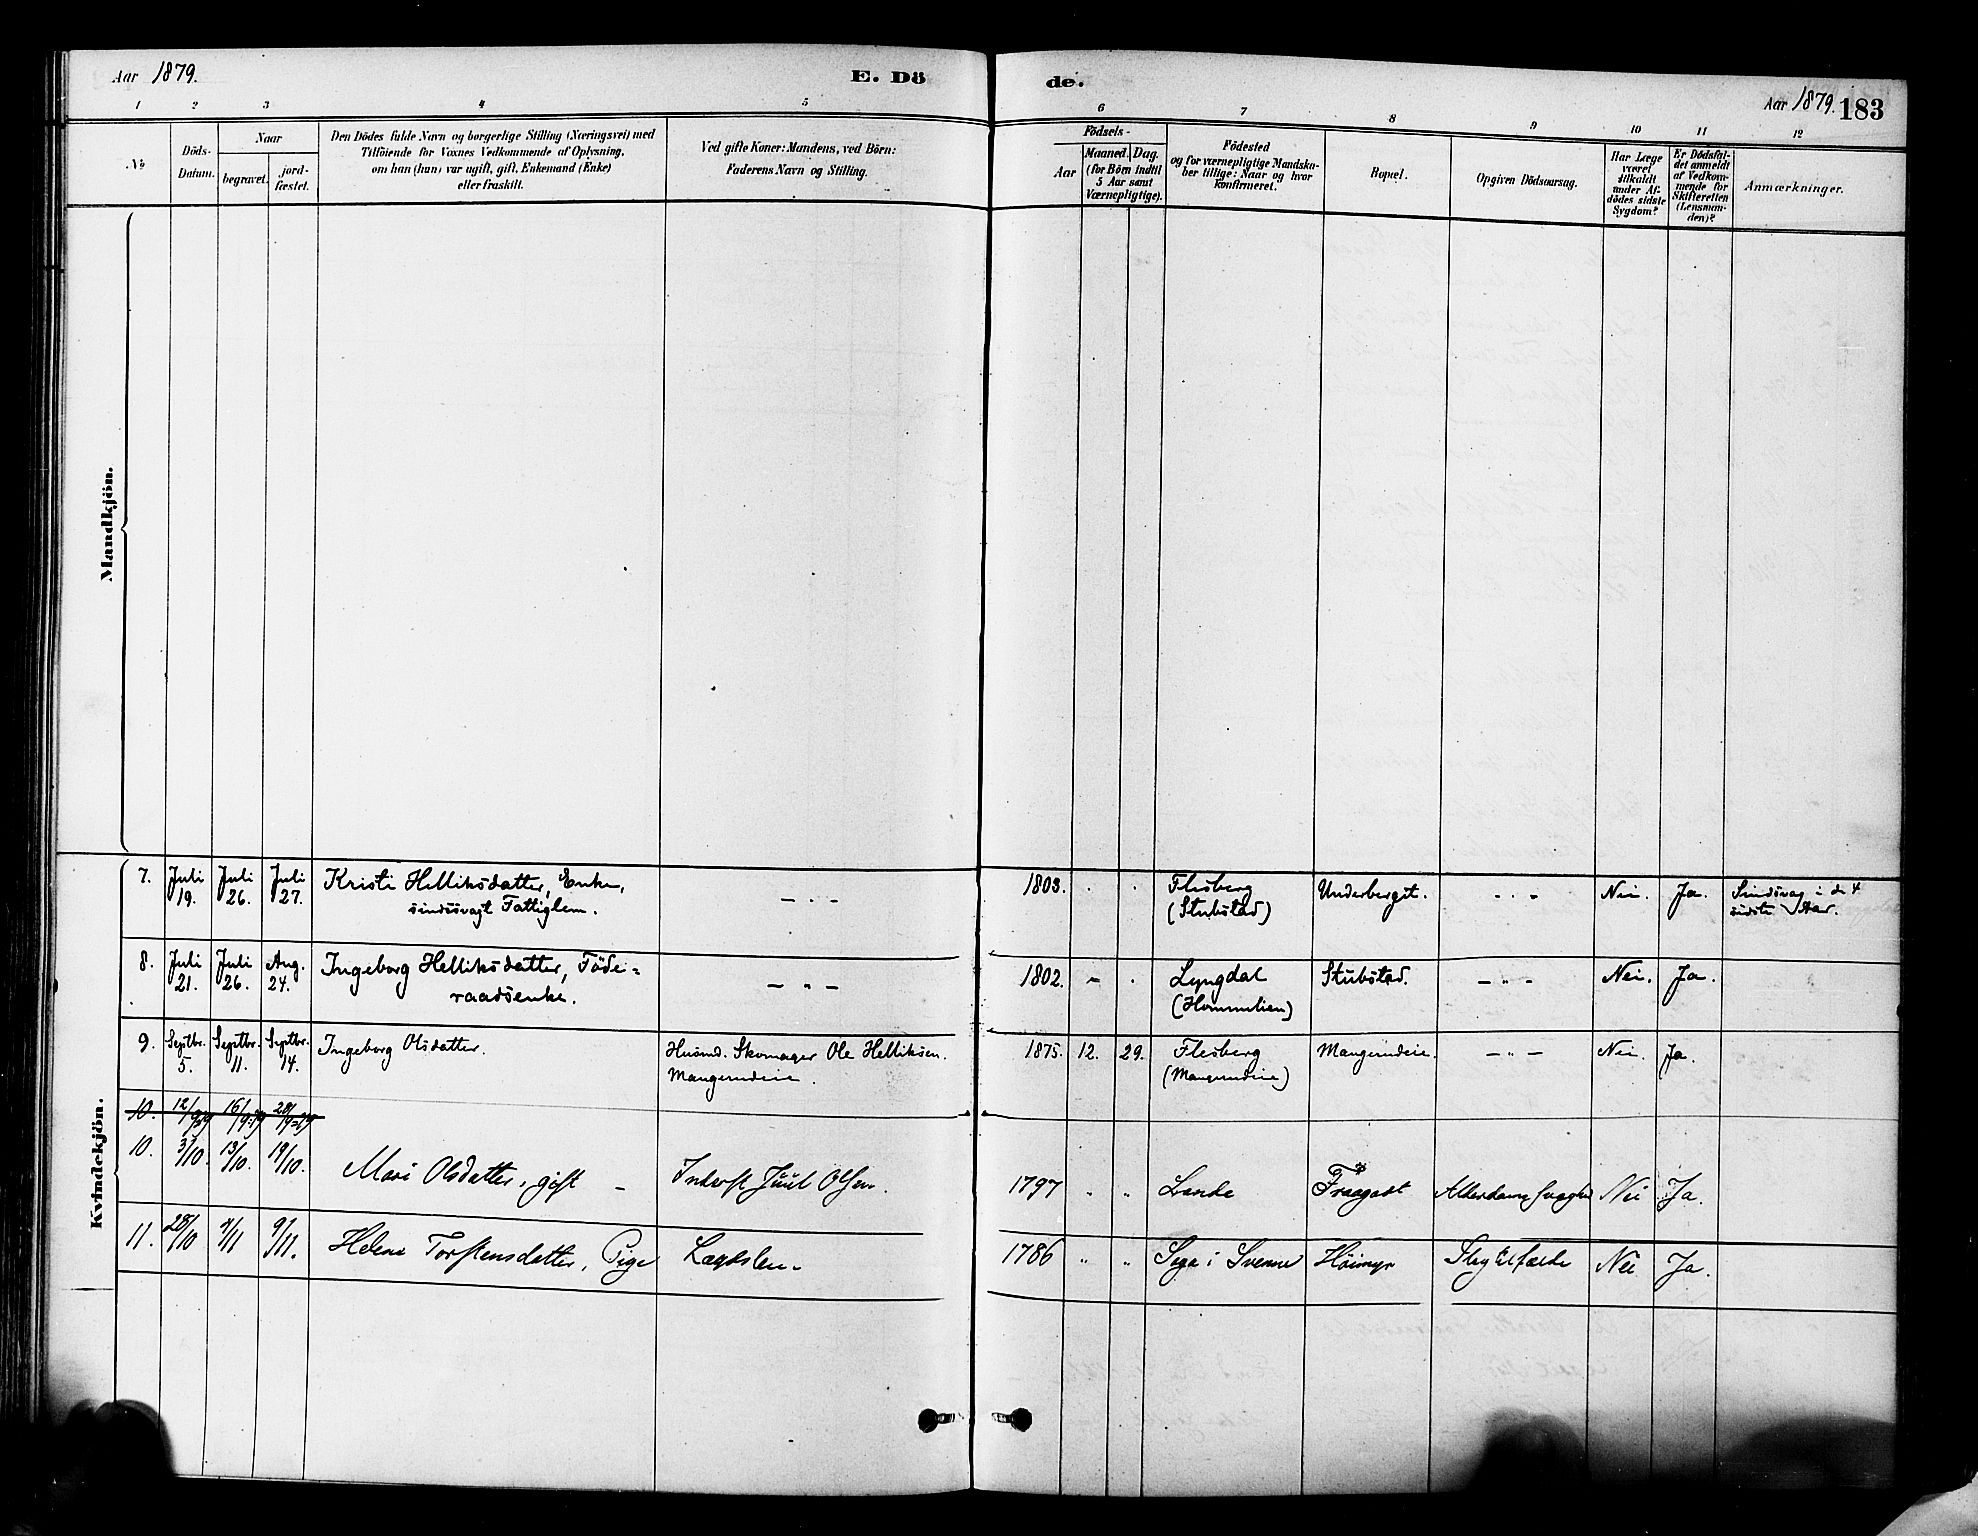 Aar 1879.
E. Dö
de.
Aar 1879. 183
1 2 3 4 5 6 7 8 9 10 11 12
No
Döds-
Datum.
Naar
begravet.
jord-
fæstet.
Den Dödes fulde Navn og borgerlige Stilling (Næringsvei) med
Tilföiende for Voxnes Vedkommende af Oplysning,
om han (hun) var ugift, gift, Enkemand (Enke)
eller fraskilt.
Ved gifte Koner: Mandens, ved Börn:
Faderens Navn og Stilling.
Födsels-
Aar
Maaned. Dag.
(for Börn indtil
5 Aar samt
Værnepligtige).
Födested
og for værnepligtige Mandska-
ber tillige: Naar og hvor
konfirmeret.
Bopæl.
Opgiven Dödsaarsag.
Har Læge
været
tilkaldt
under Af-
dödes sidste
Sygdom?
Er Dödsfal-
det anmeldt
af Vedkom-
mende for
Skifteretten
(Lensman-
den)?
Anmærkninger.
Mandkjön.
Kvindekjön.
7. Juli 19. Juli 26. Juli 27. Kristi Helliksdatter, Enke, - " - 1803. " " Flesberg Underberget. " " " Nei. Ja. Sindsvag i de 4
sindssvagt Fattiglem. (Stubstad) sidste Aar.
8. Juli 21. Juli 26. Aug. 24. Ingeborg Helliksdatter, Föde= - " - 1802. - " Lyngdal Stubstad. - " - Nei. Ja.
raadsenke. (Hommelien)
9. Septbr. 5. Septbr. 11. Septbr. 14. Ingeborg Olsdatter. Husmd. Skomager Ole Helliksen. 1875. 12. 29. Flesberg Mangerudeie. - " - Nei. Ja.
Mangerudeie. (Mangerudeie)
10. 12/9 79 16/9 79 28/9 79
10. 3/10. 13/10. 19/10. Mari Olsdatter, gift - Inderst Juul Olsen. 1797 " " Lande Alderdomssvaghed Nei Ja.
11. 28/10 4/11 9/11. Helene Torstensdatter, Pige Lægdslem. 1786 " " i Svenne Höimyr Nei Ja.